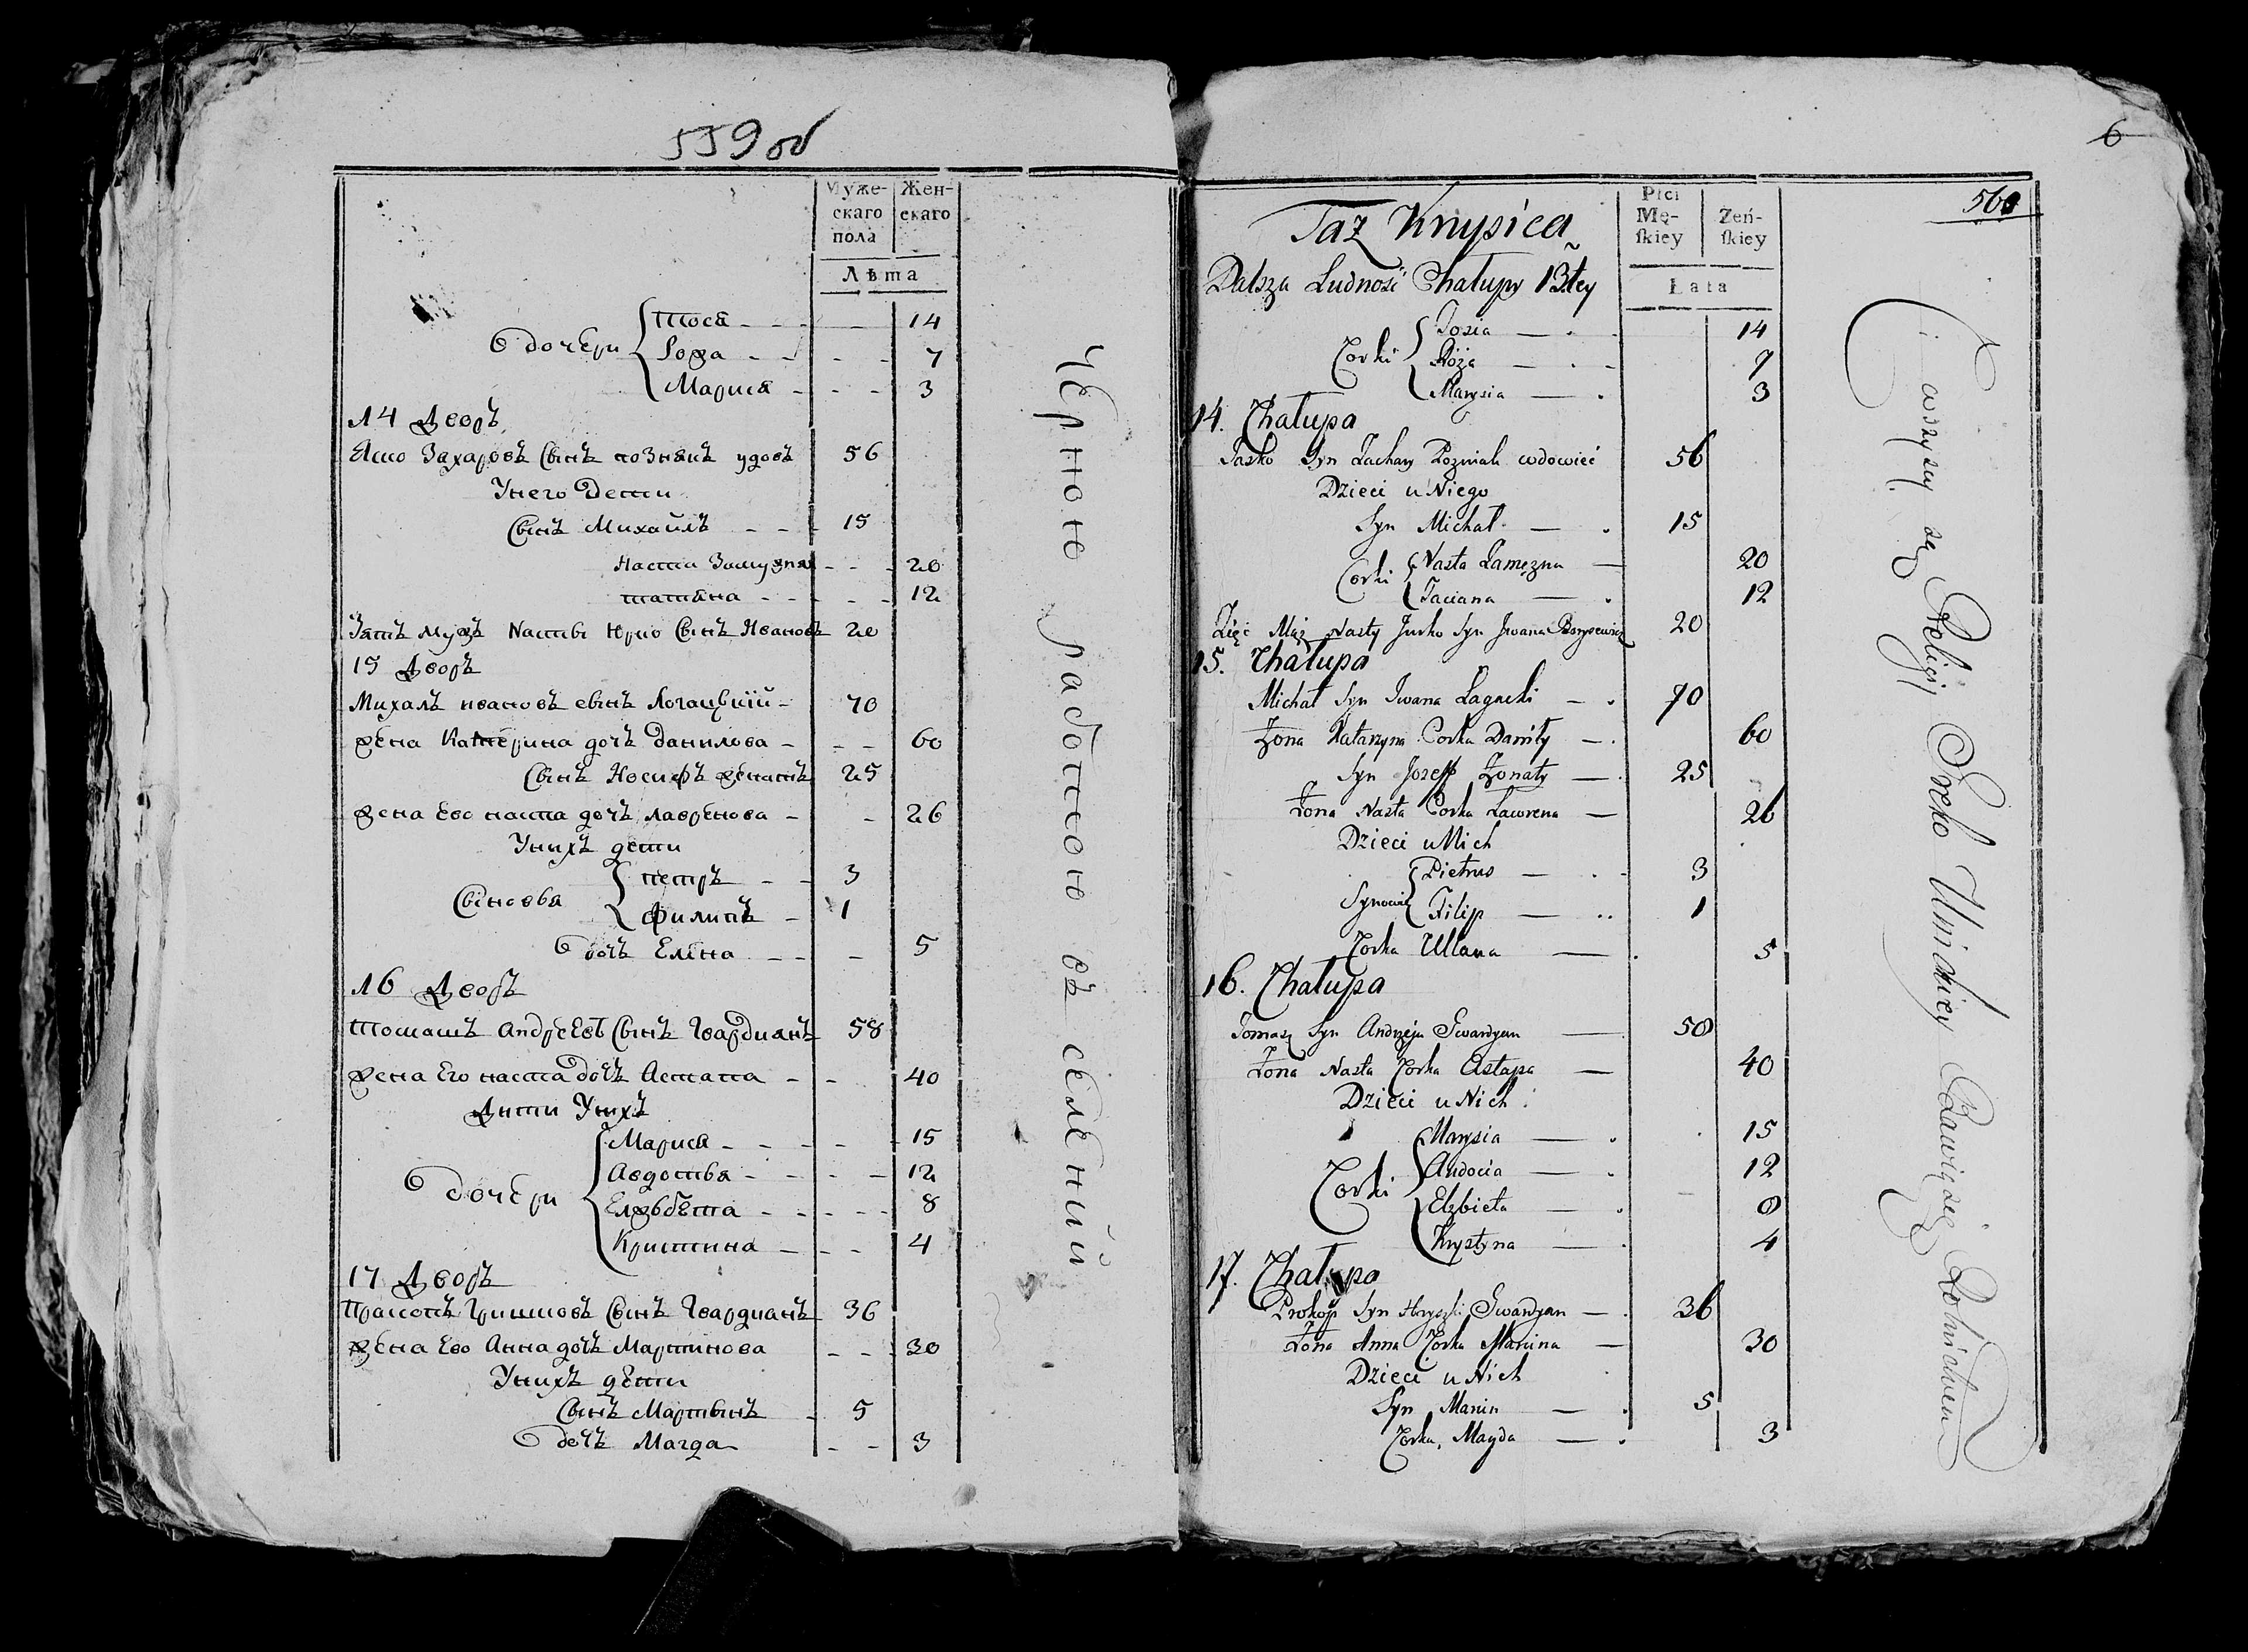 559 об
Муже-
скаго
пола
Жен-
скаго
Лѣта
дочери
Тося 14
Рожа 7
Мариса 3
14 Дворъ
Яско Захаровъ сынъ познякъ удовъ 56
Унего Дети
Сынъ Михайлъ 15
Наста Замужня 20
татяна 12
Зять мужъ Насты Юрко Сынъ Ивановъ 20
15 Дворъ
Михалъ ивановъ сынъ Логацкий 70
жена Катерина дочъ данилова 60
Сынъ Иосифъ женатъ 25
жена Ево наста дочъ лавренова 26
Унихъ дети
Сыновья
петръ 3
Филипъ 1
дочъ Елена 5
16 Дворъ
Томашъ Андреевъ Сынъ Гвардиянъ 58
жена Его наста дочъ Астапа 40
Дѣти Унихъ
дочери
Мариса 15
Авдотья 12
Елжбета 8
Кристина 4
17 Дворъ
Пракопъ Гришковъ Сынъ Гвардианъ 36
жена Ево Анна дочъ Мартинова 30
Унихъ дети
Сынъ Мартынъ 5
дочъ Магда 3
Черною работою въ селений
6
560
Taż Knysica
Płci
Mę-
ſkiey
Żeń-
ſkiey
Dalsza Ludność Chałupy 13tey
Lata
Corki
Tosia 14
Róża 7
Marysia 3
14. Chałupa
Jasko Syn Zachary Pozniak wdowiec 56
Dzieci u Niego
Syn Michał 15
Corki
Nasta Zamężna 20
Taciana 12
Zięć Mąż Nasty Jurko Syn Jwana Borysewicz 20
15. Chałupa
Michał Syn Iwana Łagacki 70
Żona Katarzyna Corka Daniły 60
Syn Jozeff Żonaty 25
Żona Nasta Corka Lawrena 26
Dzieci u Nich
Synowie
Pietrus 3
Filip 1
Corka Ullana 5
16. Chałupa
Tomasz Syn Andrzeja Gwardyan 58
Żona Nasta Corka Astapa 40
Dzieci u Nich
Corki
Marysia 15
Audocia 12
Elżbieta 8
Krystyna 4
17. Chałupa
Prokop Syn Hryszki Gwardyan 36
Żona Anna Corka Marcina 30
Dzieci u Nich
Syn Marcin 5
Corka Magda 3
Ci wszyscy są Religii Greko Unickiey Bawią się Rolnictwem